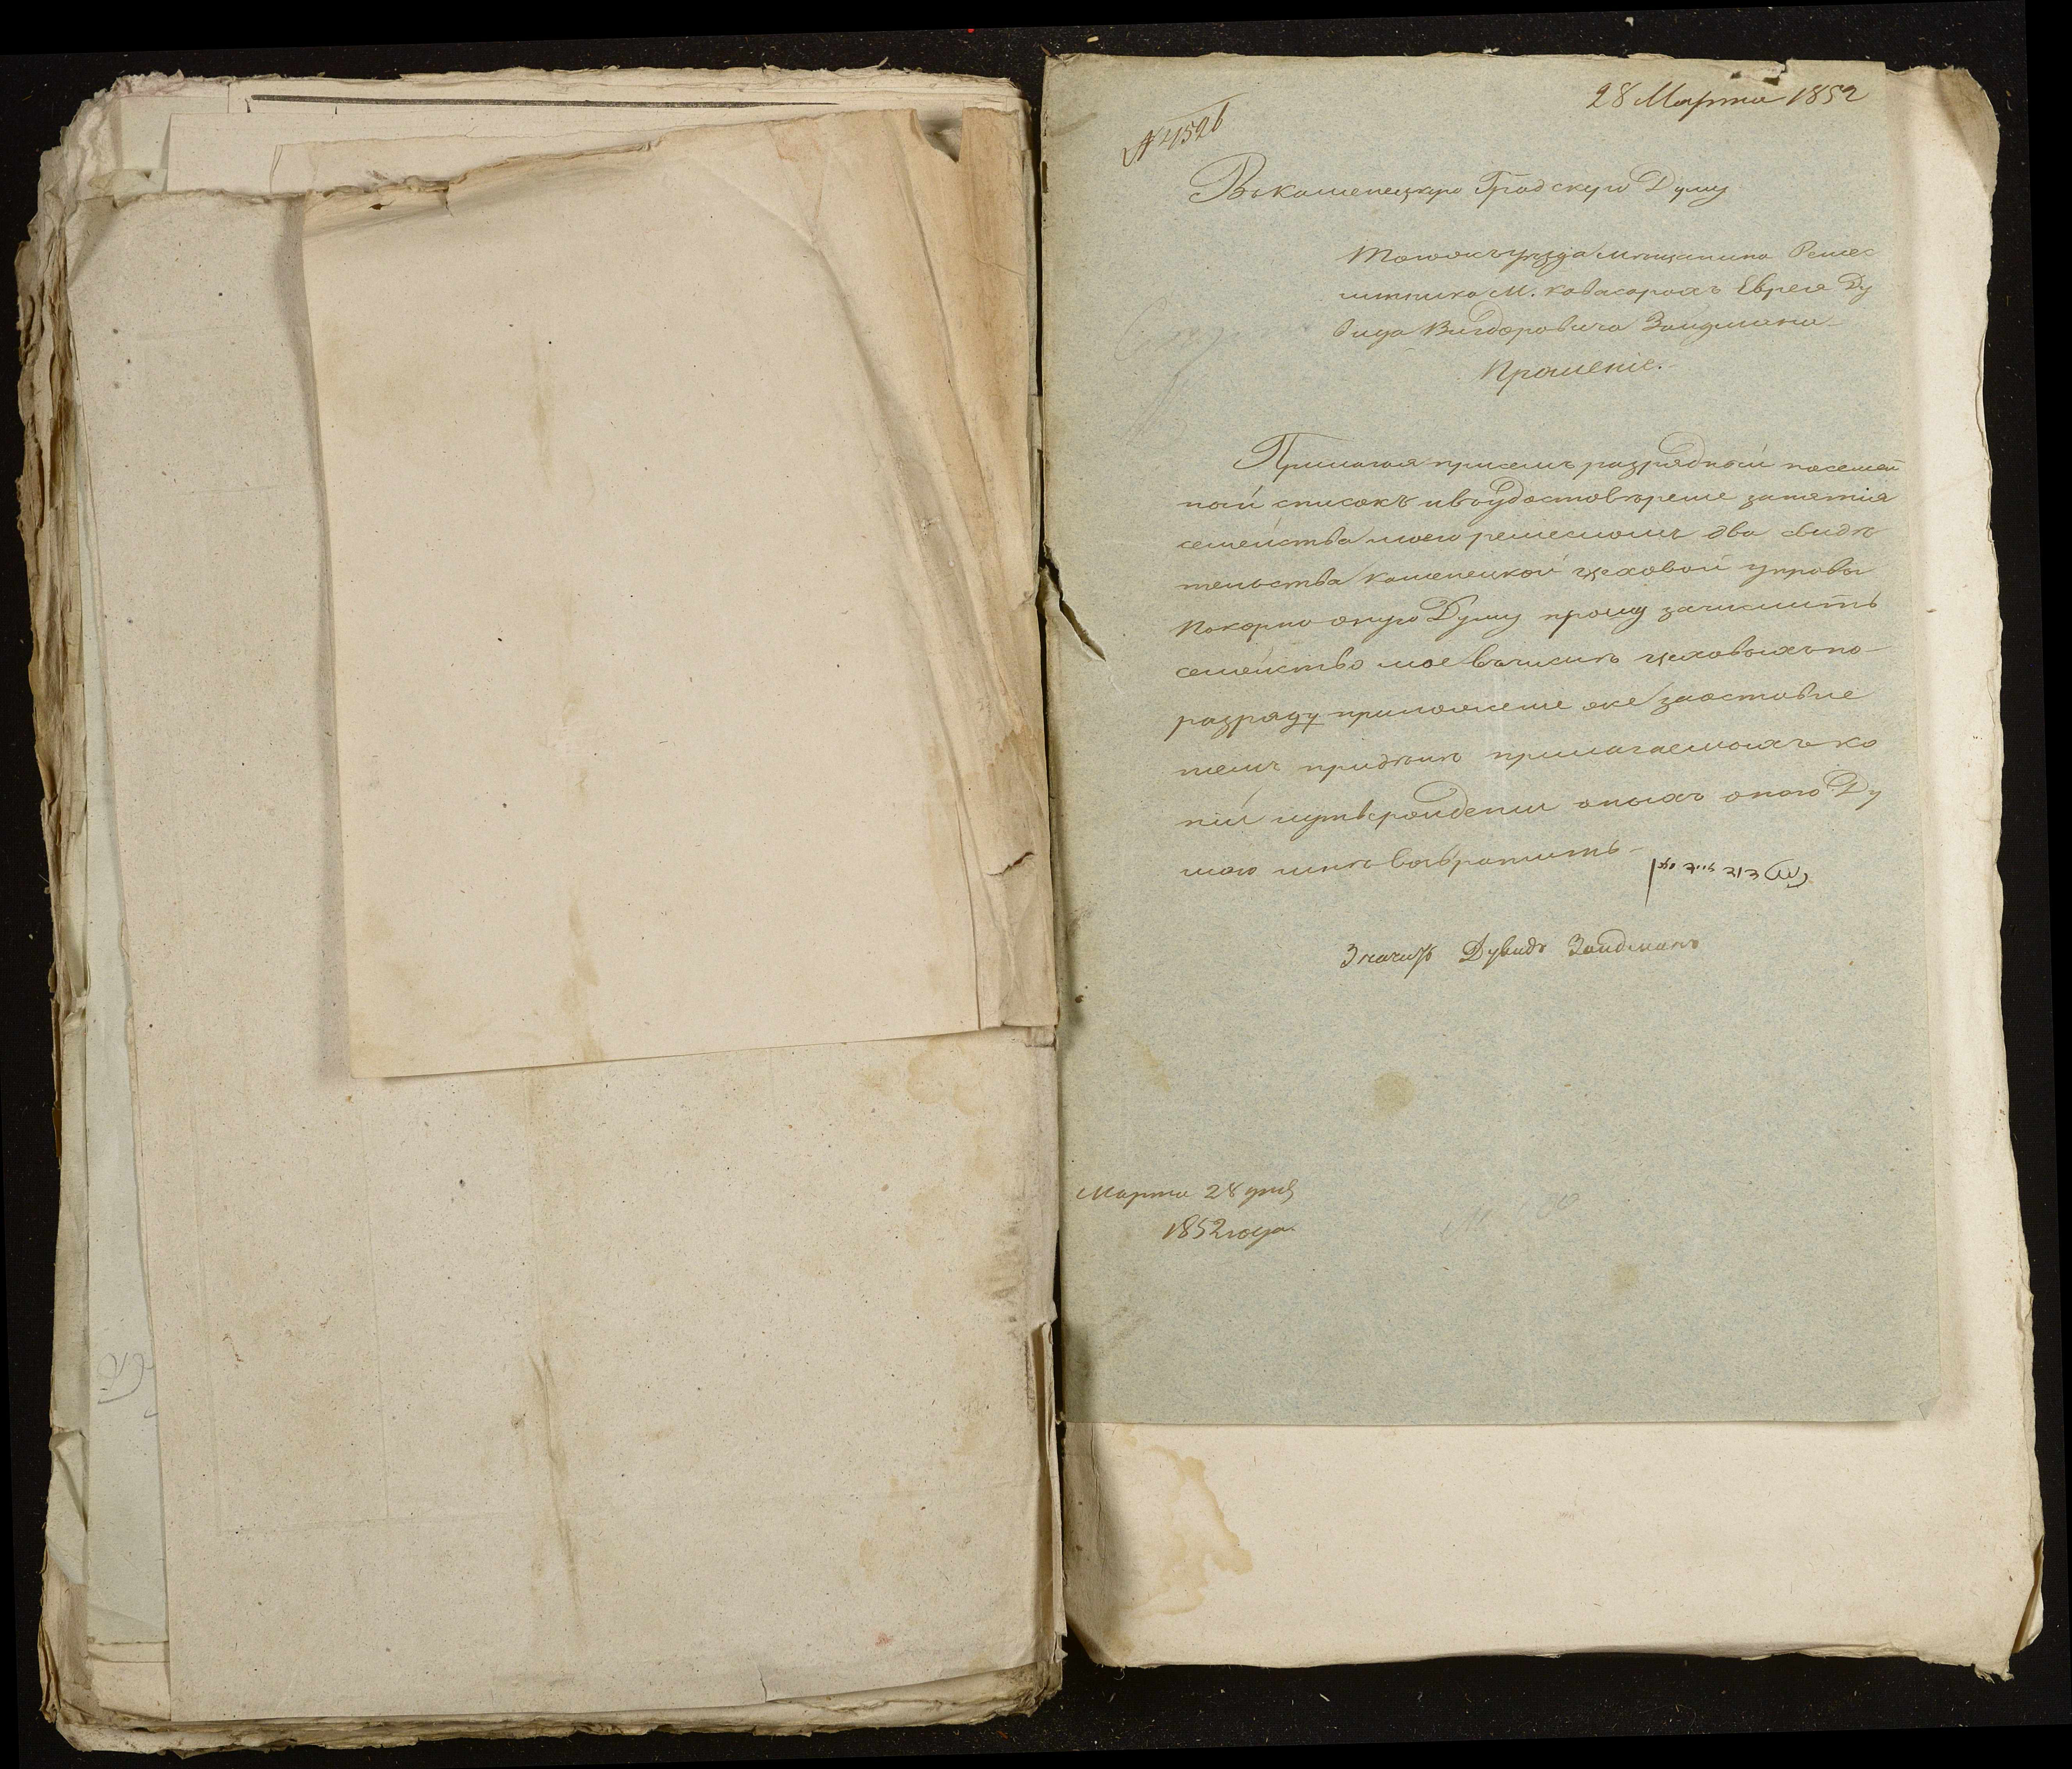 28 Марта 1852
№ 4526
Въ Каменецкую Градскую Думу
тогожъ уезда мещанина Ремес
ника М. Еврея Ду
вида Вигдоровича Зайдмана
Прошеніе.
Прилагая присемъ разрядный посемей
ный списокъ ивъ удостовѣреніе занятія
семейства моего ремесломъ два свидѣ
тельства Каменецкой цеховой управы
Покорно оную Думу прошу зачислить
семейство мое въ число цеховыхъ по
разряду приложеніе же
темъ придѣлѣ прилагаемыхъ ко
пій иутвержденіи оныхъ оною Ду
мою мнѣ возвратить
דוד
Значитъ Дувидъ Зайдманъ
Марта 28 дня
1852 года.